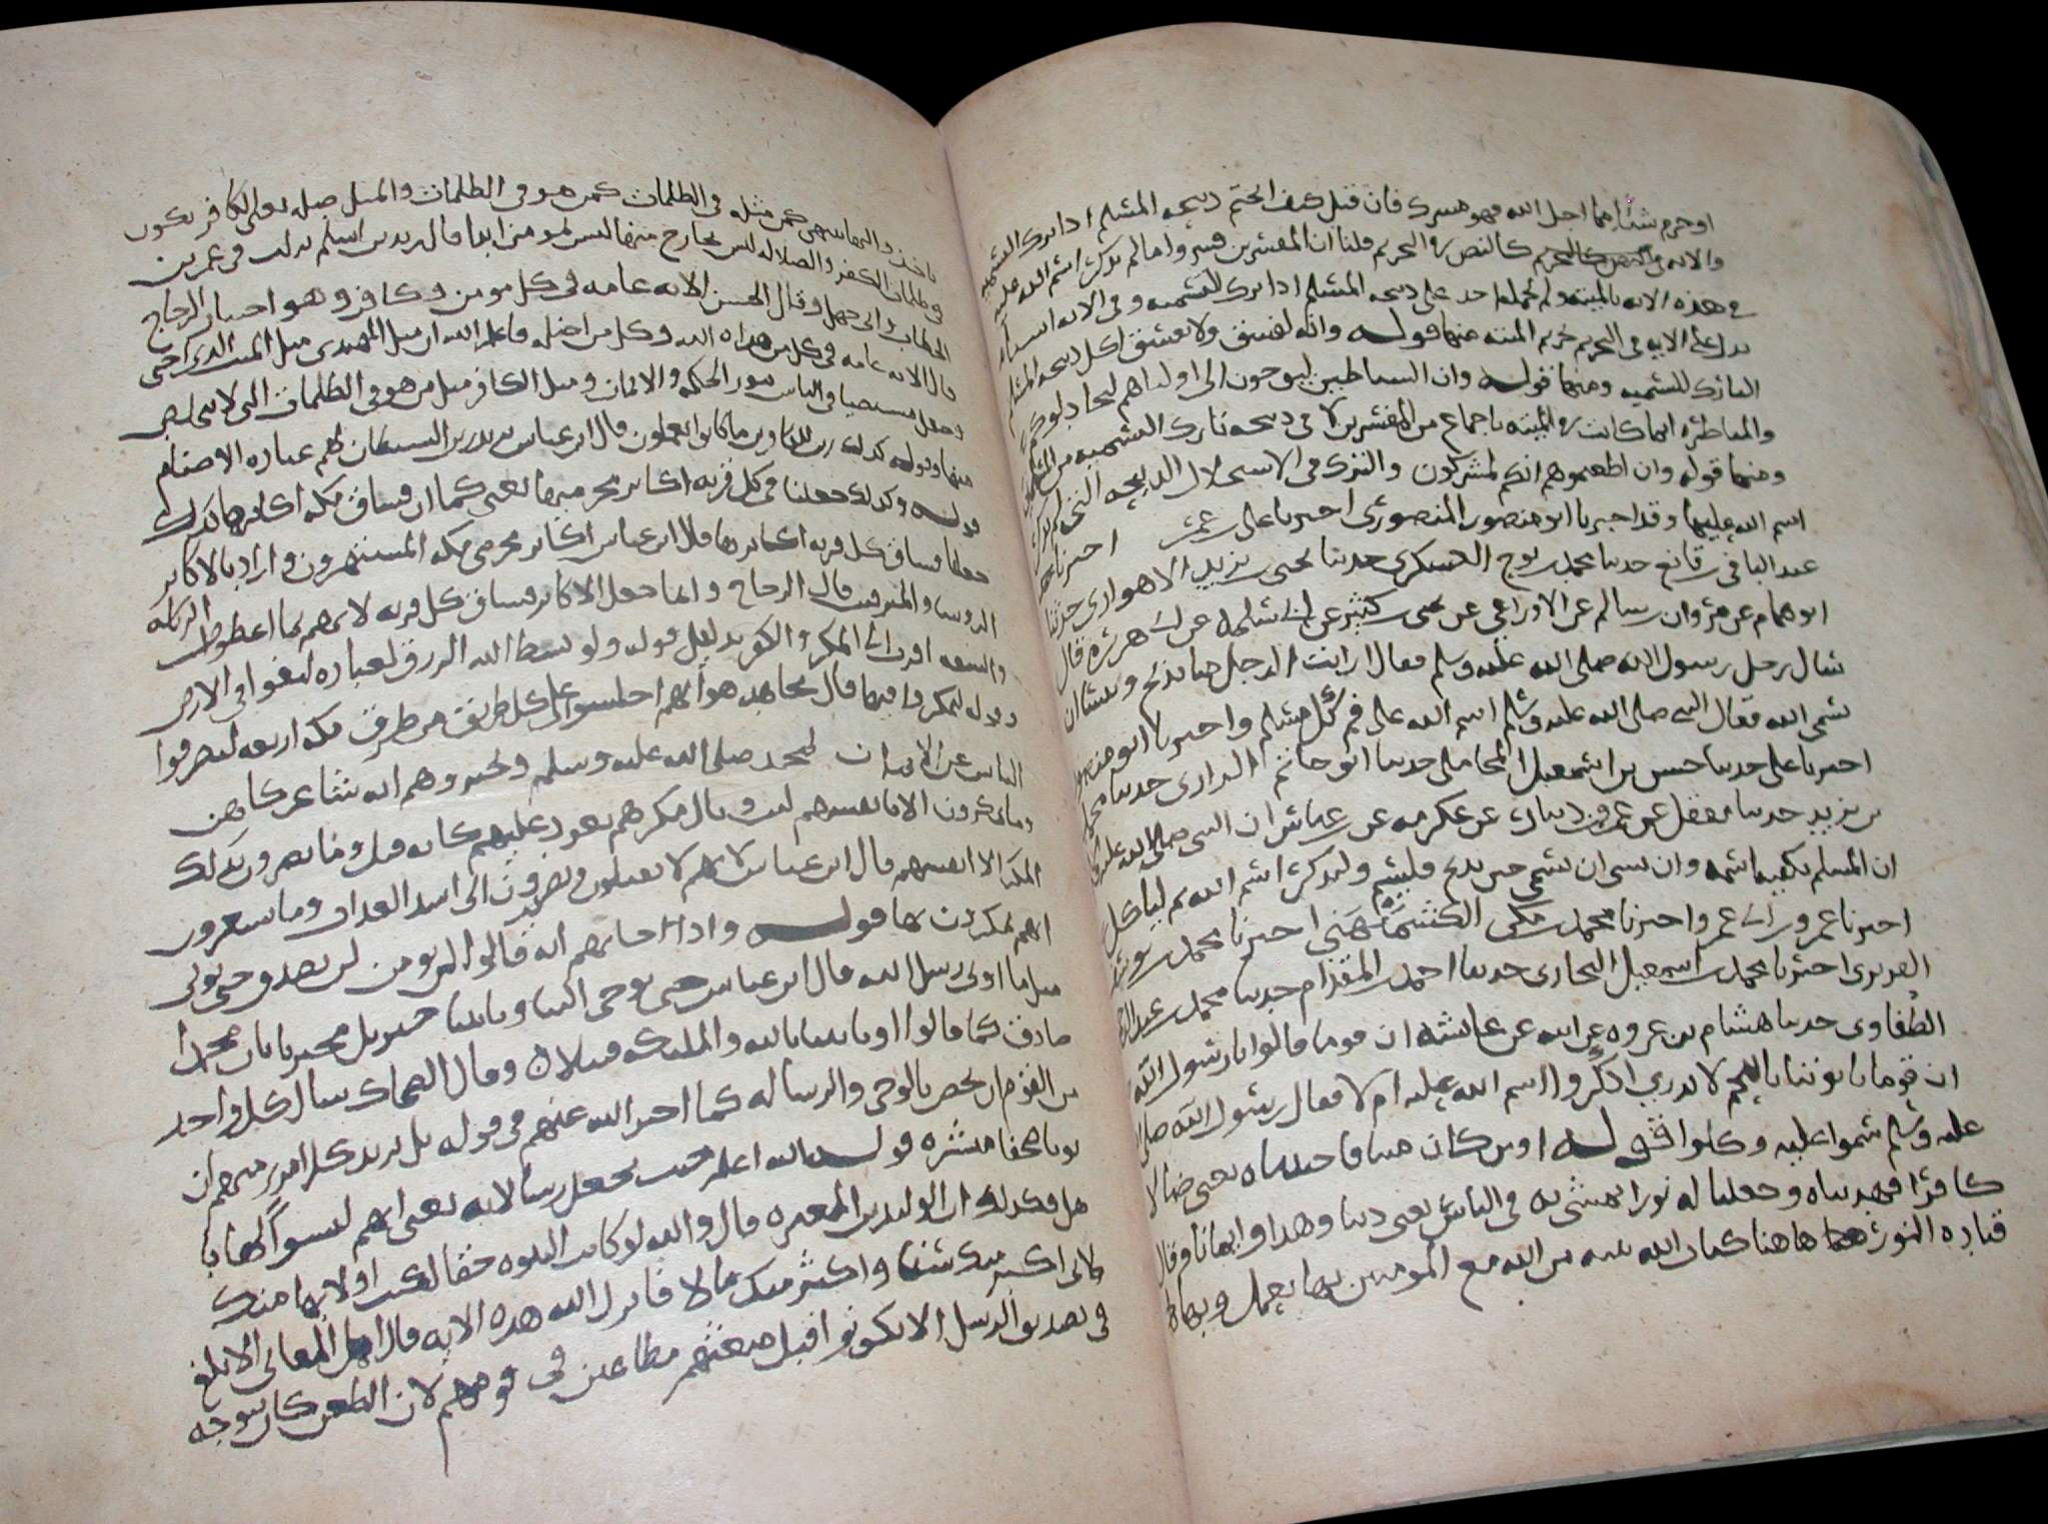 او حرم شيئا مما احل الله فهو مشرك فان قيل كيف ابحتم ذبيحه المسلم اذا ترك التسميه
والايه كالنص في التحريم قلنا ان المفسرين فسروا ما لم يذكر اسم الله عليه
في هذه الايه بالميته ولم يحمله احد على ذبيحه المسلم اذا ترك التسميه وفي الايه اشيآء
تدل على ان الايه في تحريم الميته منها قوله وانه لفسق ولا يفسق اكل ذبيحه المسلم
التارك للتسميه ومنها قوله وان الشياطين ليوحون الى اوليآهم ليجادلوكم
والمناظره انما كانت في الميته باجماع من المفسرين لا في ذبيحه تارك التسميه من المسلمين
ومنها قوله وان اطعتموهم انكم لمشركون والشرك في الاستحلال الذبيحه التي لم يذكر
اسم الله عليها وقد اخبرنا ابو منصور المنصوري اخبرنا على بن عمر اخبرنا
عبد الباقي بن قانع حدثنا محمد بن نوح العسكري حدثنا يحيى بن يزيد الاهوازي حدثنا
ابو همام عن مروان بن سالم عن الاوزاعي عن يحيى بن كثير عن ابي سلمه عن ابي هريره قال
سال رجل رسول الله صلى الله عليه وسلم فقال ارايت الرجل منا يذبح وينسا ان
يسمي الله فقال النبي صلى الله عليه وسلم اسم الله على فم كل مسلم واخبرنا ابو منصور
اخبرنا على حدثنا حسين بن اسمعيل المحاملي حدثنا ابو حاتم الرازي حدثنا محمد
بن يزيد حدثنا معقل عن عمرو بن دينار عن عكرمه عن بن عباس ان النبي صلى الله عليه قال
ان المسلم يكفيه اسمه وان نسي ان يسمي حين يذبح فليسم وليذكر اسم الله ثم لياكل
اخبرنا عمرو بن ابي عمرو اخبرنا محمد بن مكي الكشميهني اخبرنا محمد بن يوسف
الفربري اخبرنا محمد بن اسمعيل البخاري حدثنا احمد بن المقدام حدثنا محمد بن عبد الرحمن
الطفاوي حدثنا هشام بن عروه عن ابيه عن عائشه ان قوما قالوا يا رسول الله
ان قوما ياتوننا باللحم لا ندري اذكروا اسم الله عليه ام لا فقال رسول الله صلى
عليه وسلم سموا عليه وكلوا قوله اومن كان ميتا فاحييناه يعني ضالا
كافرا فهديناه وجعلنا له نورا يمشي به في الناس يعني دينا وهدا وايمانا وقال
قتاده النور هاهنا كتاب الله بينه من الله مع المومنين بها يعمل وبها
ياخذ واليها ينتهي كمن مثله في الظلمات كمن هو في الظلمات والمثل صله يعلم الكافر يكون
في ظلمات الكفر والضلاله ليس بخارج منها ليس بمومن ابدا قال زيد بن اسلم نزلت في عمر بن
الخطاب وابي جهل وقال الحسن الايه عامه في كل مومن وكافر وهو اختيار الزجاج
قال الايه عامه في كل من هداه الله وكل من اضله فاعلم الله ان مثل المهتدي مثل الميت الذي احيي
وجعل مستضيا في الناس بنور الحكمه والايمان ومثل الكافر مثل من هو في الظلمات التي لا يتخلص
منها وقوله كذلك زين للكافرين ما كانوا يعملون قال ابن عباس يريد زين الشيطان لهم عباده الاصنام
قوله وكذلك جعلنا في كل قريه اكابر مجرميها يعني كما ان فساق مكه اكابرها كذلك
جعلنا فساق كل قريه اكابرها قال ابن عباس اكابر مجرمي مكه المستهزون واراد بالاكابر
الروسا والمترفين قال الزجاج وانما جعل الاكابر فساق كل قريه لانهم بما اعطوا من الرياسه
والسعه اقرب الى المكر والكفر بدليل قوله ولو بسط الله الرزق لعباده لبغوا في الارض
وقوله ليمكروا فيها قال مجاهد هو انهم اجلسوا على كل طريق من طرق مكه اربعه ليصرفوا
الناس عن الايمان بمحمد صلى الله عليه وسلم ويخبروهم انه شاعر كاهن
وما يمكرون الا بانفسهم لان وبال مكرهم يعود عليهم كانه قيل وما يضرون بذلك
المكر الا انفسهم قال ابن عباس لانهم لا يقتلون ويصيرون الى اشد العذاب وما يشعرون
انهم يمكرون بها قوله واذا جاتهم ايه قالوا لن نومن لن نصدق حتى نوتى
مثل ما اوتي رسل الله قال ابن عباس حتى يوحى الينا وياتينا جبريل فيخبرنا بان محمدا
صادق كما قالوا او تاتي بالله والمليكه قبيلا وقال الضحاك سال كل واحد
من القوم ان يخص بالوحي والرساله كما اخبر الله عنهم في قوله بل يريد كل امرئ منهم ان
يوتا صحفا منشره قوله الله اعلم حيث يجعل رسالاته يعني انهم ليسوا لها با
هل وذلك ان الوليد بن المغيره قال والله لو كانت النبوه حقا لكنت اولا بها منك
لاني اكبر منك سنا واكثر منك مالا فانزل الله هذه الايه قال اهل المعاني الابلغ
في تصديق الرسل الا يكونوا قبل مبعثهم مطاعين في قومهم لان الطعن كان يتوجه